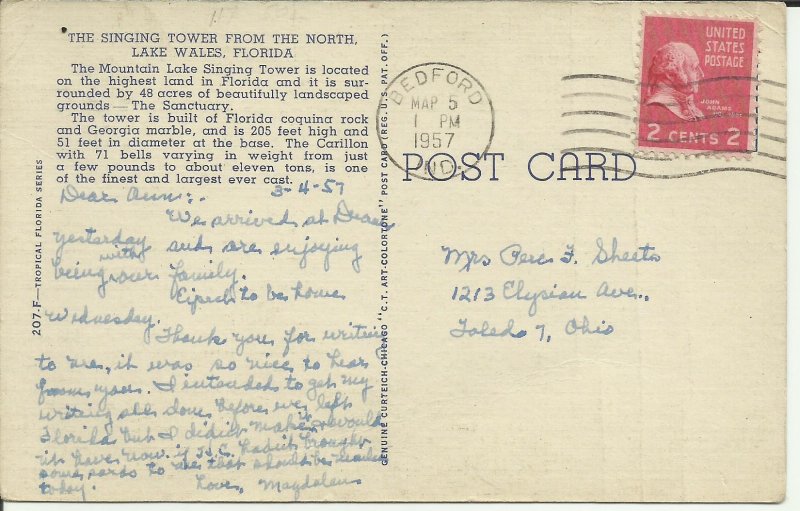 THE SINGING TOWER FROM THE NORTH,
LAKE WALES, FLORIDA
The Mountain Lake Singing Tower is located
on the highest land in Florida and it is sur-
rounded by 48 acres of beautifully landscaped
grounds — The Sanctuary.
The tower is built of Florida coquina rock
and Georgia marble, and is 205 feet high and
51 feet in diameter at the base. The Carillon
with 71 bells varying in weight from just
a few pounds to about eleven tons, is one
of the finest and largest ever cast.
207-F—TROPICAL FLORIDA SERIES
3-4-57
Dear Ann:
We arrived at
yesterday and are enjoying
being with our family.
Expect to be home
Wednesday.
Thank you for writing
to me, it was so nice to hear
from you. I intended to get my
writing all done before we left
Florida but I didn't make it
have now if J.C. hadn't brought
some cards to me that should be
today.
Love, Magdalena
GENUINE CURTEICH-CHICAGO "C.T. ART-COLORTONE" POST CARD (REG. U.S. PAT. OFF.)
BEDFORD
MAR 5
1 PM
1957
IND.
UNITED
STATES
POSTAGE
JOHN
ADAMS
2 CENTS 2
POST CARD
Mrs F. Sheets
1213 Elysian Ave.,
Toledo 7, Ohio